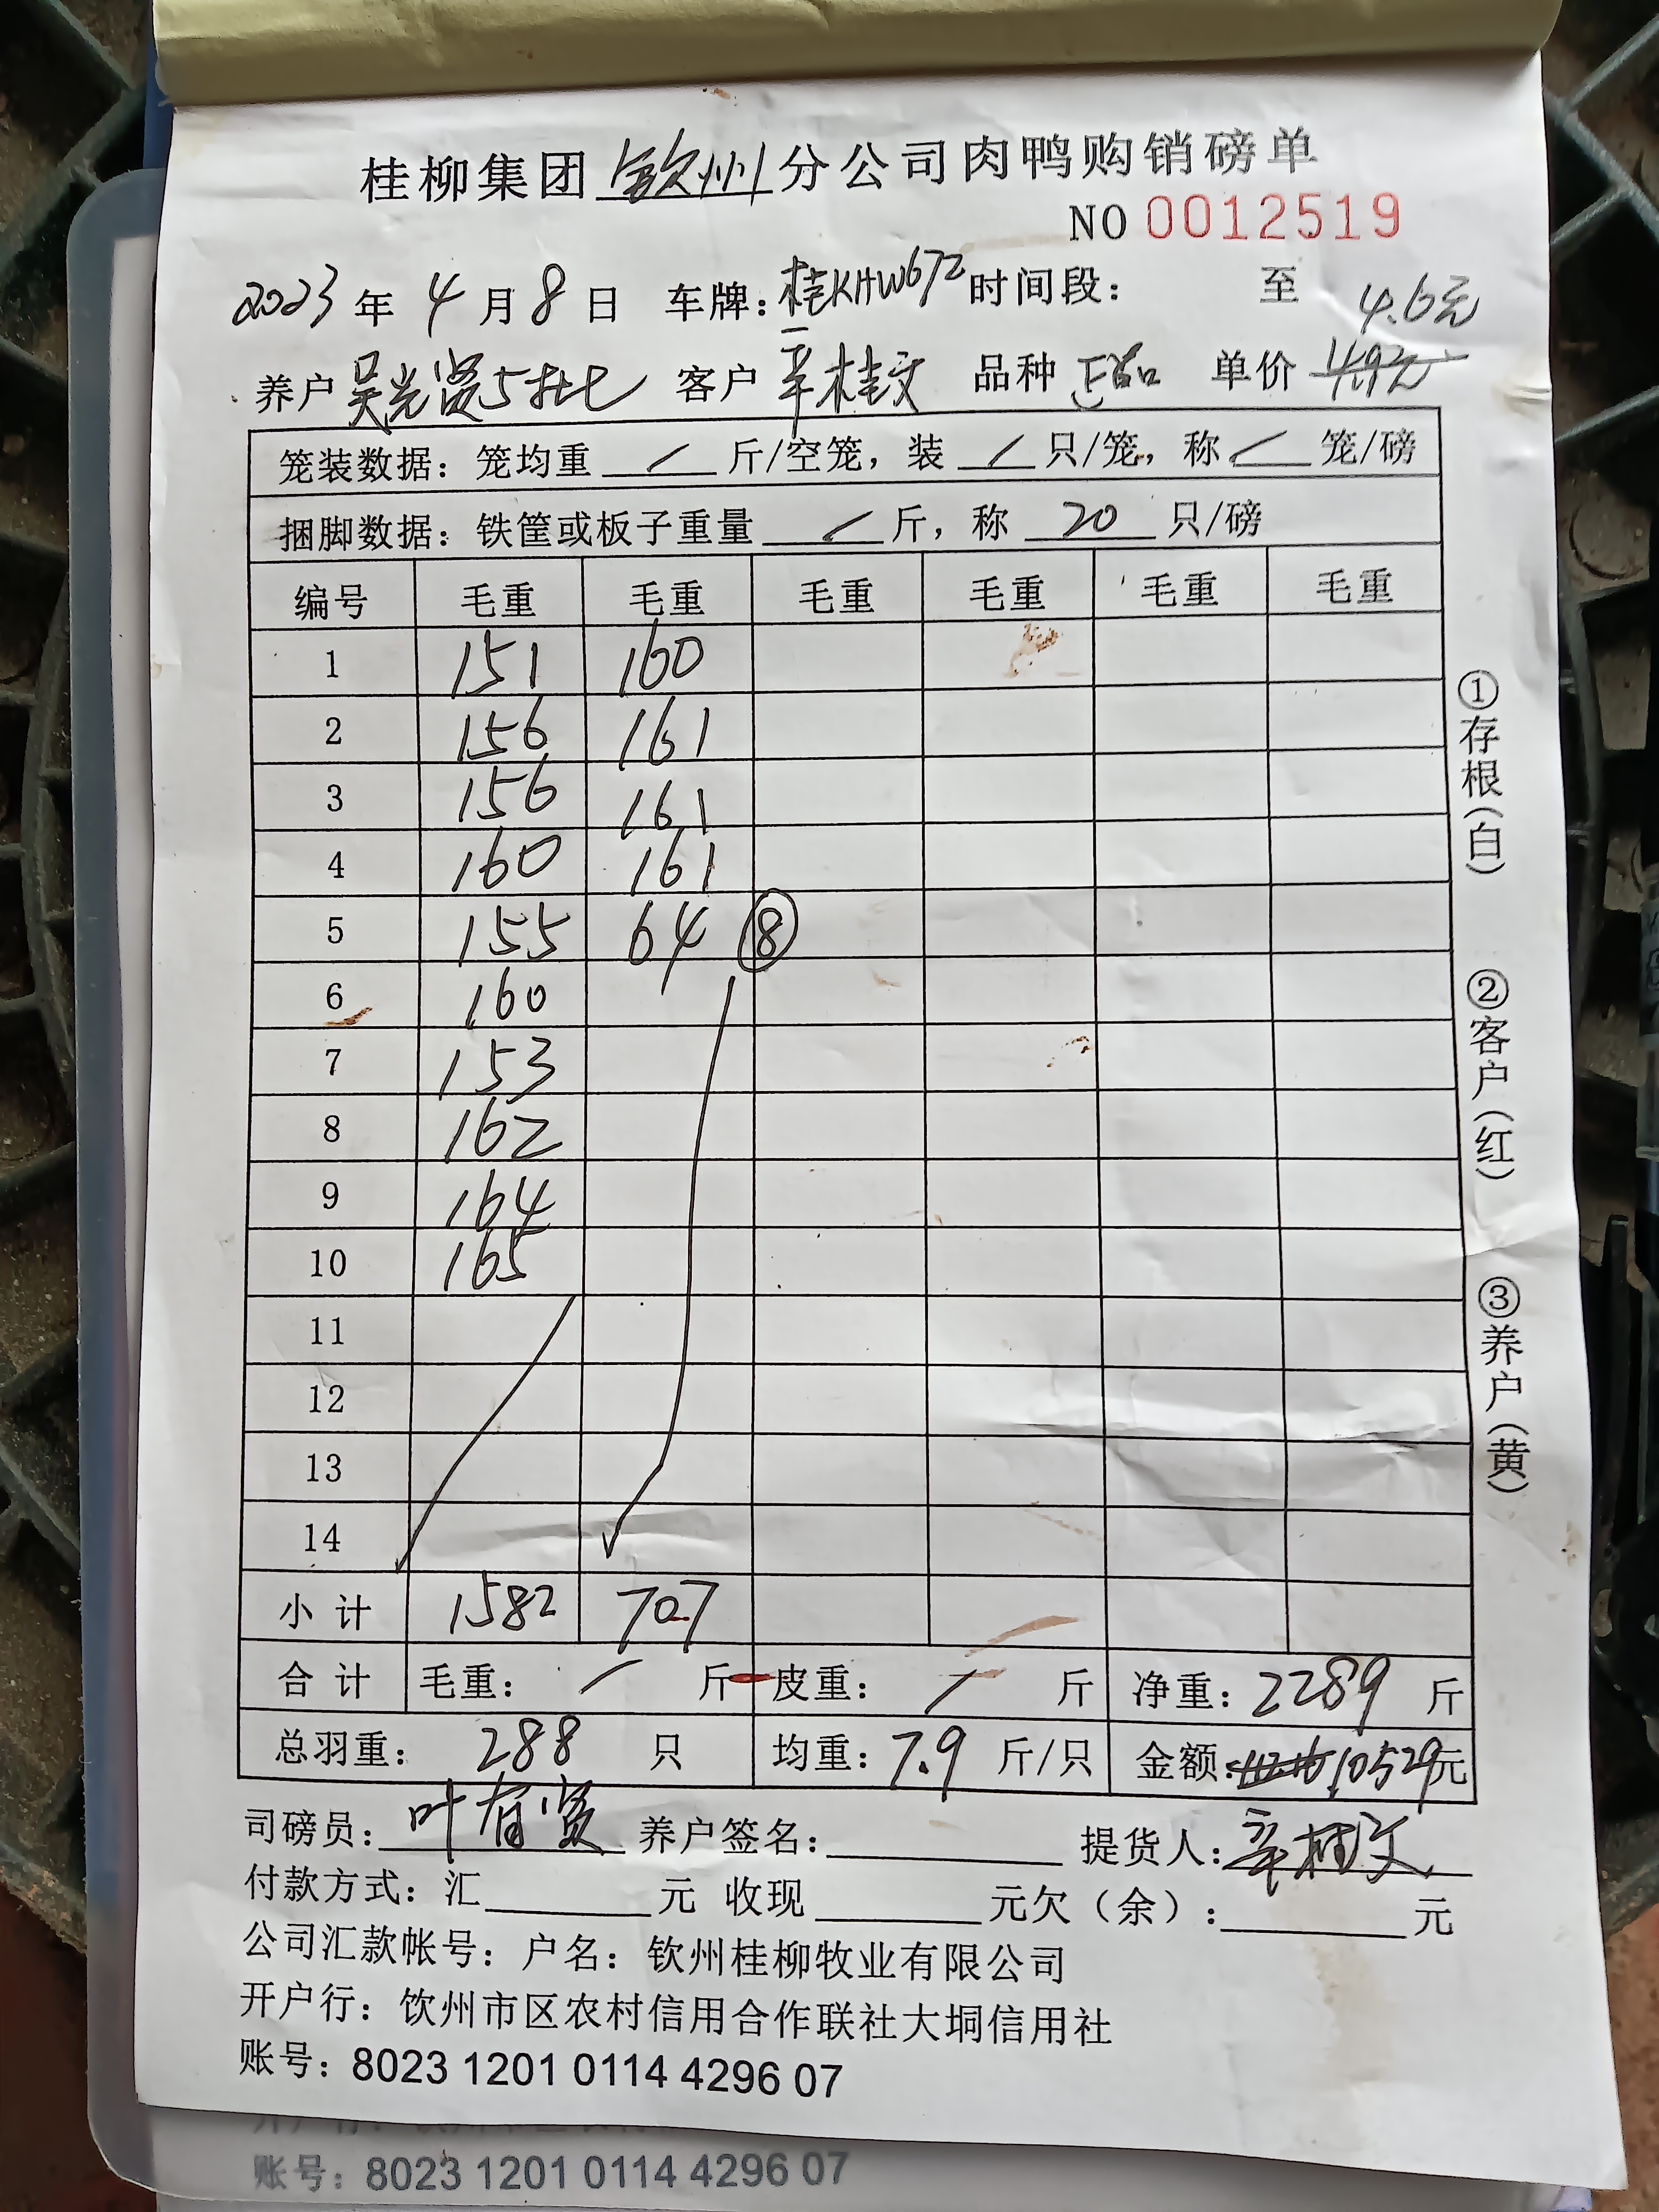 桂柳集团钦州分公司肉鸭购销磅单
NO 0012519
2023年4月8日 车牌:桂KHW672 时间段: 至
4.6元
养户 吴光贤5批七 客户 辛桂文 品种 正品 单价 4.92元
笼装数据:笼均重 / 斤/空笼,装 / 只/笼,称 / 笼/磅
捆脚数据:铁筐或板子重量 / 斤,称 20 只/磅
编号 毛重 毛重 毛重 毛重 毛重 毛重
1 151 160
2 156 161
3 156 161
4 160 161
5 155 64 ⑧
6 160
7 153
8 162
9 164
10 165
11
12
13
14
小计 1582 707
合计 毛重: / 斤 皮重: / 斤 净重:2289 斤
总羽重: 288 只 均重:7.9 斤/只 金额:10529元
司磅员:叶有贤 养户签名: 提货人:辛桂文
付款方式:汇 元 收现 元欠(余): 元
公司汇款帐号:户名:钦州桂柳牧业有限公司
开户行:饮州市区农村信用合作联社大垌信用社
账号:8023 1201 0114 4296 07
①存根(白) ②客户(红) ③养户(黄)
账号:8023 1201 0114 4296 07